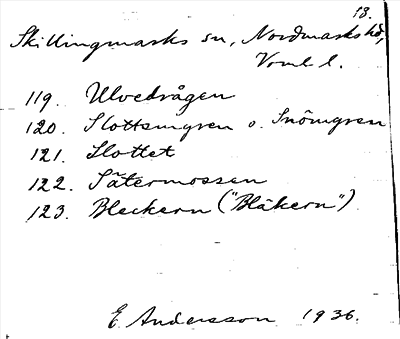 13.
Skillingmarks sn, Nordmarks hd,
Verml l.
119. Ulvedrågen
120. Slottsmyren o. Snömyren
121. Slottet
122. Sätermossen
123. Bleckern ("Bläkern")
E. Andersson 1936.